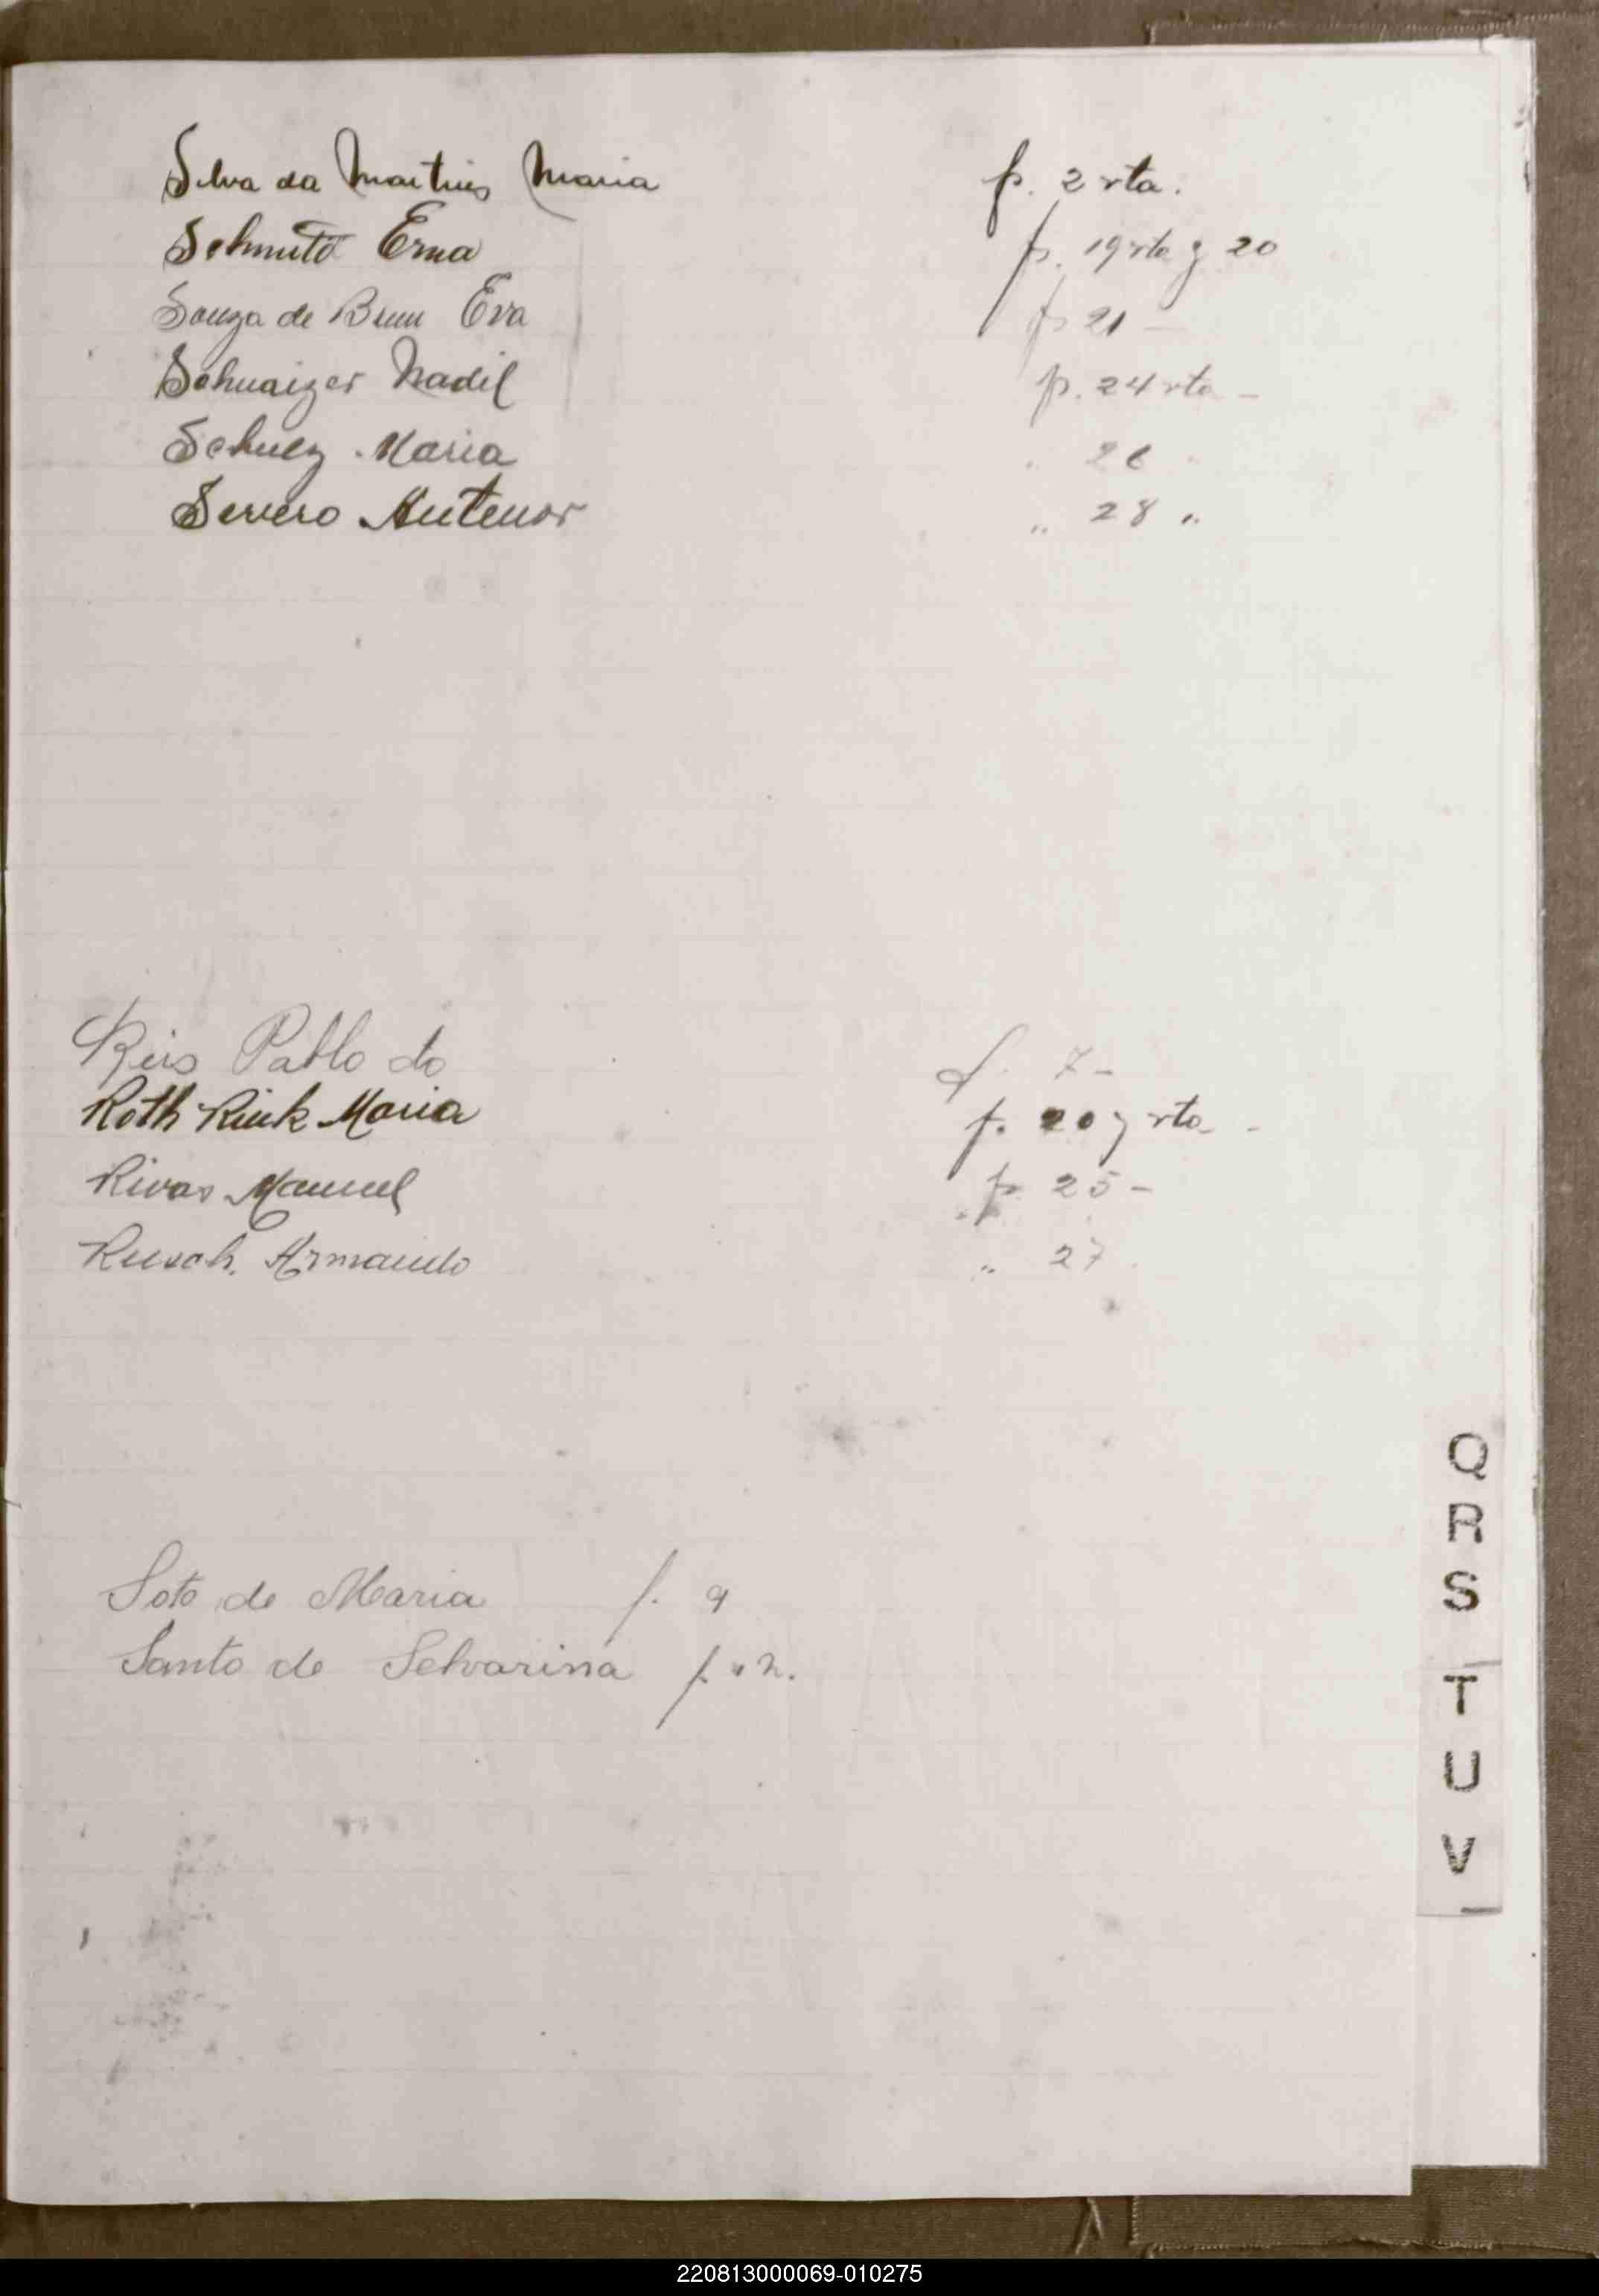 Silva da Martins Maria f. 2 vta.
Schmitt Erna f. 19 vta y 20
Souza de Brum Eva f 21 -
Schuaizer Nadil f. 24 vta -
Schulz Maria " 26 "
Severo Antenor " 28 "
Reis Pablo do f. 7 -
Roth Rink Maria f. 20 y vta -
Rivas Manuel f. 25 -
Rusch. Armando " 27
Soto de Maria f. 9
Santo de Selvarina f.
Q
R
S
T
U
V
220813000069-010275